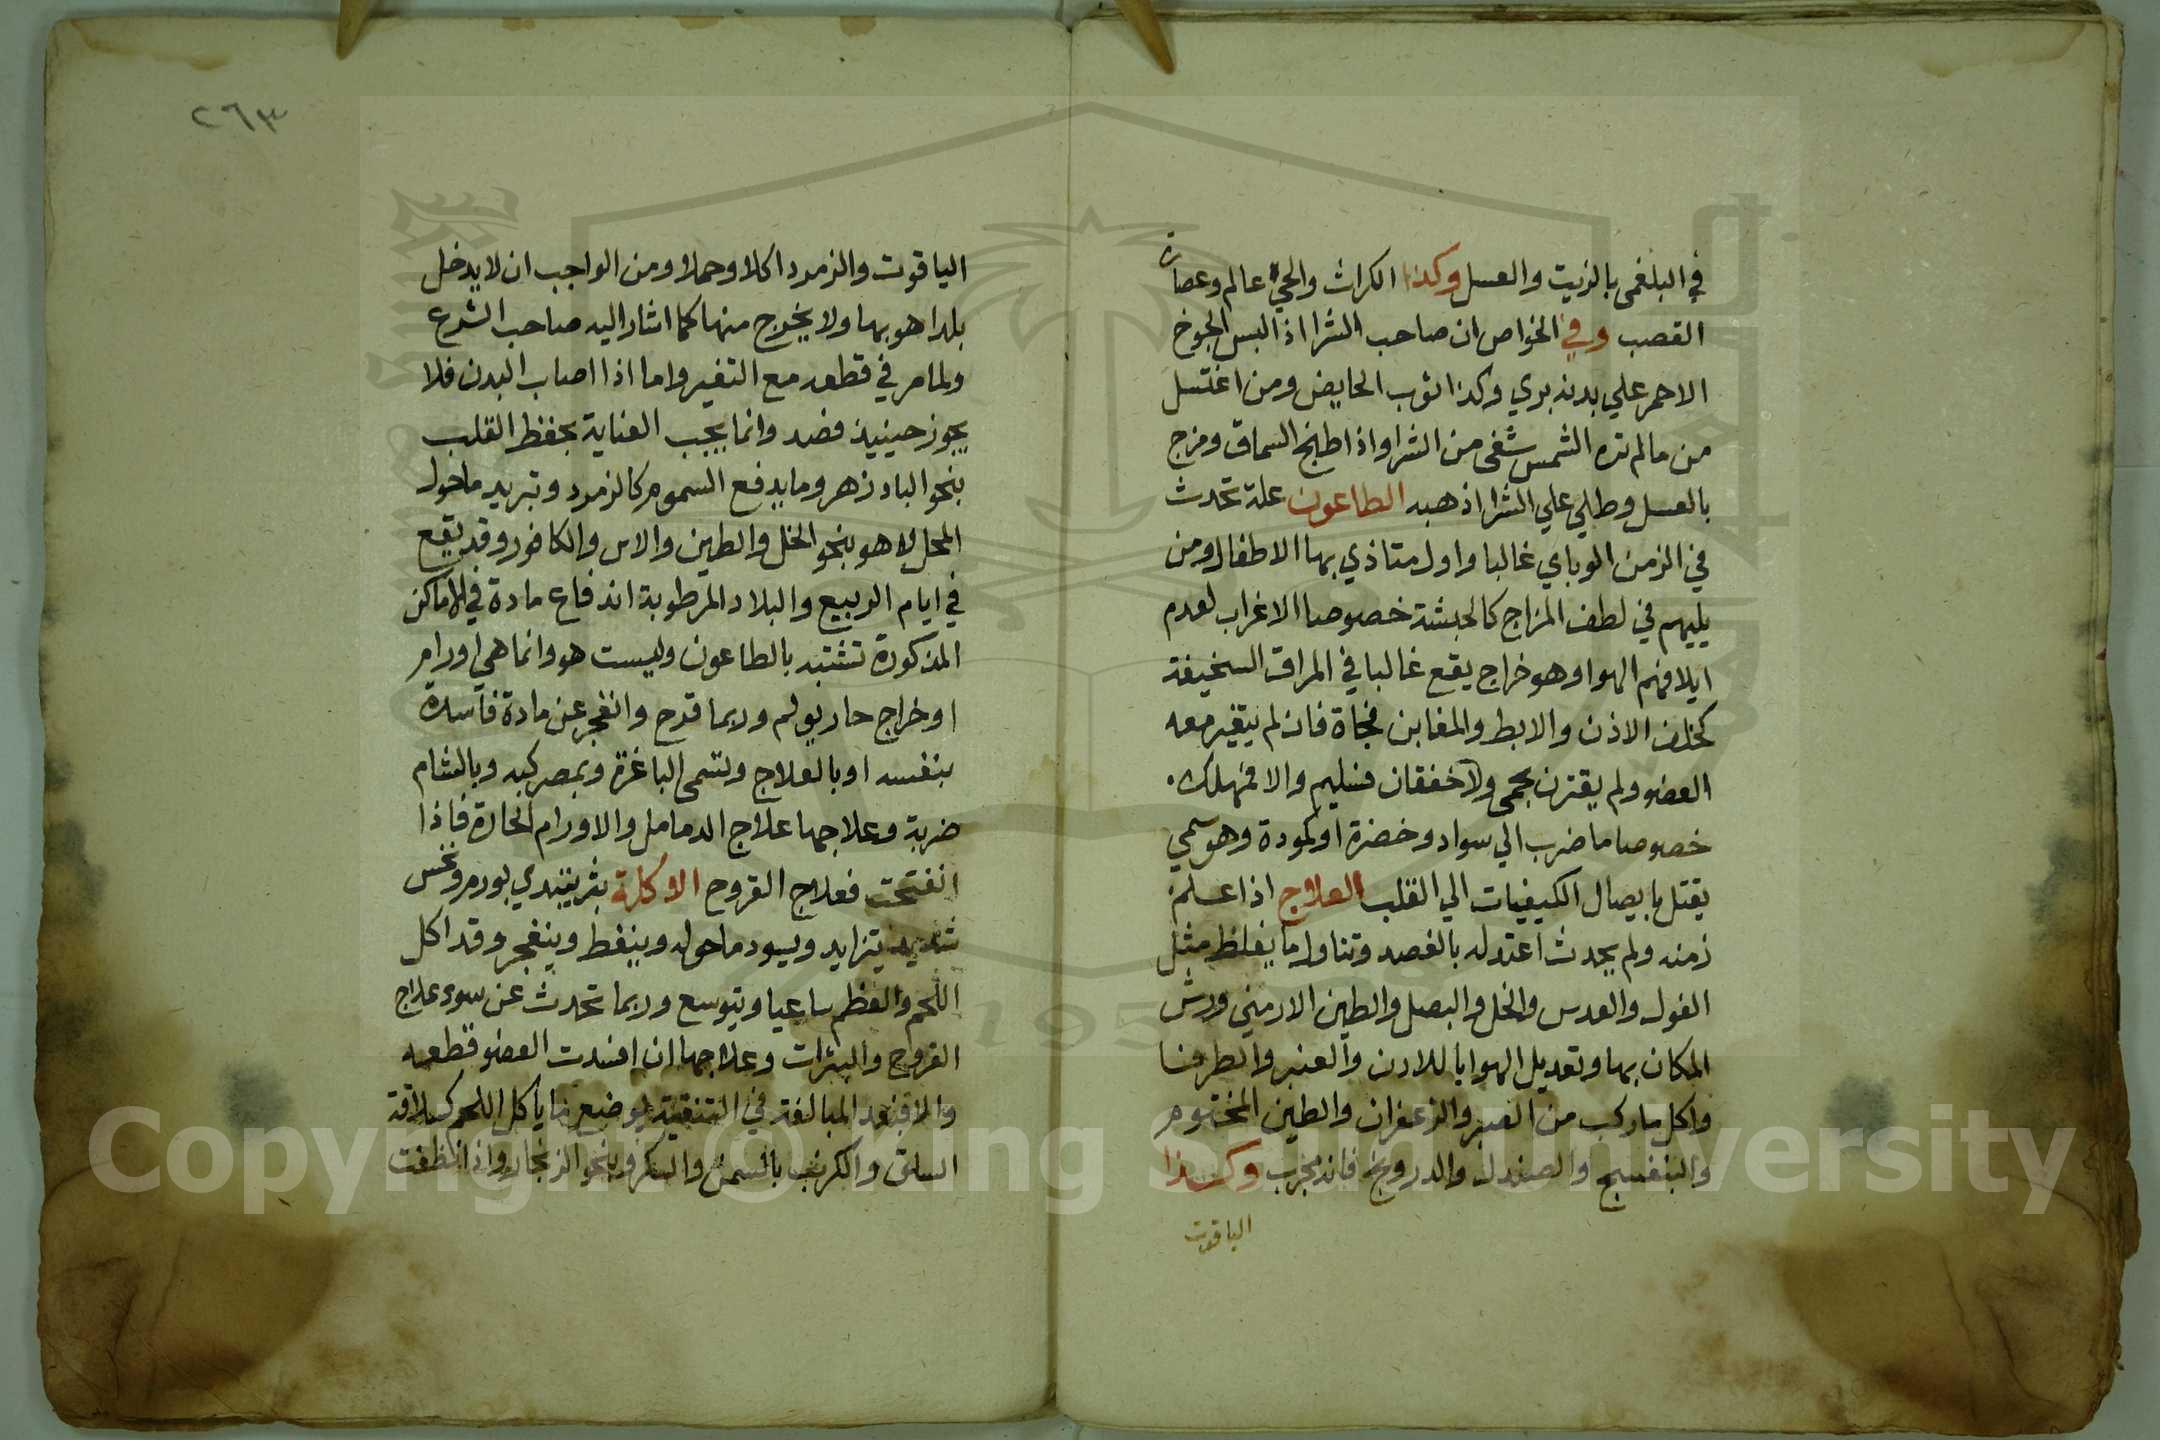 في البلغمى بالزيت والعسل وكذا الكراث والحي عالم وعصارة
القصب وفي الخواص ان صاحب الشرا اذا لبس الجوخ
الاحمر علي بدنه بري وكذا ثوب الحايض ومن اغتسل
من ما لم تره الشمس شفى من الشرا واذا طبخ السماق ومزج
بالعسل وطلي علي الشرا اذهبه الطاعون علة تحدث
في الزمن الوباي غالبا واول متاذي بها الاطفال ومن
يليهم في لطف المزاج كالحبشة خصوصا الاغراب لعدم
ايلافهم الهوا وهو خراج يقع غالبا في المراق السخيفة
كخلف الاذن والابط والمغابن فجاة فان لم يتغير معه
العضو ولم يقترن بحمى ولا خفقان فسليم والا فمهلك
خصوصا ما ضرب الي سواد وخضرة او كمودة وهو سمي
يقتل بايصال الكيفيات الي القلب العلاج اذا علم
زمنه ولم يحدث اعتد له بالفصد وتناول ما يغلظ مثل
الفول والعدس والخل والبصل والطين الارمني ورش
المكان بها وتعديل الهوا باللادن والعنبر والطرفا
واكل ما ركب من العنبر والزعفران والطين المختوم
والبنفسج والصندل والدرونج فانه مجرب وكذا
الياقوت
٢٦٣
الياقوت والزمرد اكلا وحملا ومن الواجب ان لا يدخل
بلدا هو بها ولا يخرج منها كما اشار اليه صاحب الشرع
ولما مر في قطعه مع التغير واما اذا اصاب البدن فلا
يجوز حينيذ فصد وانما يجب العناية بحفظ القلب
بنحو البادزهر وما يدفع السموم كالزمرد وتبريد ما حول
المحل لا هو بنحو الخل والطين والاس والكافور وقد يقع
في ايام الربيع والبلاد المرطوبة اندفاع مادة في الاماكن
المذكورة تشتبه بالطاعون وليست هو وانما هي اورام
او خراج حار يولم وربما قرح وانفجر عن مادة فاسدة
بنفسه او بالعلاج وتسمى الباغرة وبمصر كبه وبالشام
ضربة وعلاجها علاج الدمامل والاورام الحارة فاذا
انفتحت فعلاج القروح الاوكلة بثر يبتدي بورم ونخس
شديد يتزايد ويسود ما حوله وينفط وينفجر وقد اكل
اللحم والعظم ساعيا ويتوسع وربما تحدث عن سوء علاج
القروح والبثرات وعلاجها ان افسدت العضو قطعه
والا فبعد المبالغة في التنقية يوضع ما ياكل اللحم كسلاقة
السلق والكرنب بالسمن والسكر وبنحو الزنجار واذا نظفت